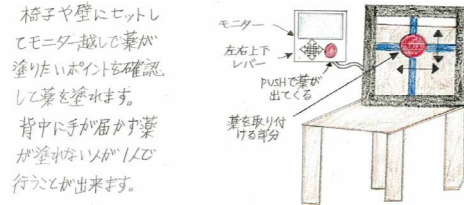 椅子や壁にセットし
てモニター越しで薬が
塗りたいポイントを確認
して薬を塗れます。
背中に手が届かず薬
が塗れない人が1人で
行うことが出来ます。
モニター
左右上下
レバー
PUSHで薬が
出てくる
薬を取り付
ける部分